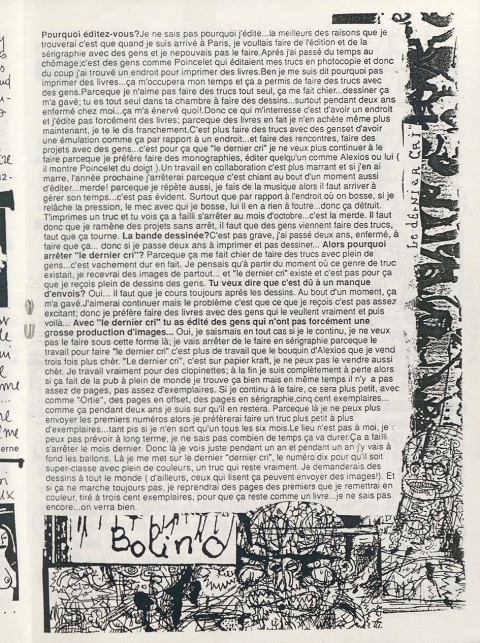 Pourquoi éditez-vous?Je ne sais pas pourquoi j'édite...la meilleurs des raisons que je
trouverai c'est que quand je suis arrivé à Paris, je voullais faire de l'édition et de la
sérigraphie avec des gens et je nepouvais pas le faire.Après j'ai passé du temps au
chômage;c'est des gens comme Poincelet qui éditaient mes trucs en photocopie et donc
du coup j'ai trouvé un endroit pour imprimer des livres.Ben je me suis dit pourquoi pas
imprimer des livres...ça m'occupera mon temps et ça a permis de faire des trucs avec
des gens.Parceque je n'aime pas faire des trucs tout seul, ça me fait chier...dessiner ça
m'a gavé; tu es tout seul dans ta chambre à faire des dessins...surtout pendant deux ans
enfermé chez moi...ça m'a énervé quoi!.Donc ce qui m'interresse c'est d'avoir un endroit
et j'édite pas forcément des livres; parceque des livres en fait je n'en achète même plus
maintenant, je te le dis franchement.C'est plus faire des trucs avec des genset d'avoir
une émulation comme ça par rapport à un endroit...et faire des rencontres, faire des
projets avec des gens...c'est pour ça que "le dernier cri" je ne veux plus continuer à le
faire parceque je préfère faire des monographies, éditer quelqu'un comme Alexios ou lui (
il montre Poincelet du doigt ).Un travail en collaboration c'est plus marrant et si j'en ai
marre, l'année prochaine j'arrêterai parceque c'est chiant au bout d'un moment aussi
d'éditer...merde! parceque je répète aussi, je fais de la musique alors il faut arriver à
gérer son temps...c'est pas évident. Surtout que par rapport à l'endroit où on bosse, si je
relâche la pression, le mec avec qui je bosse, lui il en a rien à foutre...donc ça détruit.
T'imprimes un truc et tu vois ça a failli s'arrêter au mois d'octobre...c'est la merde. Il faut
donc que je ramène des projets sans arrêt, il faut que des gens viennent faire des trucs,
faut que ça tourne. La bande dessinée?C'est pas grave, j'ai passé deux ans, enfermé, à
faire que ça... donc si je passe deux ans à imprimer et pas dessiner... Alors pourquoi
arrêter "le dernier cri"? Parceque ça me fait chier de faire des trucs avec plein de
gens...c'est vachement dur en fait. Je pensais qu'à partir du moment où ce genre de truc
existait, je recevrai des images de partout... et "le dernier cri" existe et c'est pas pour ça
que je reçois plein de dessins des gens. Tu veux dire que c'est dû à un manque
d'envois? Oui... il faut que je cours toujours après les dessins. Au bout d'un moment, ça
m'a gavé.J'aimerai continuer mais le problème c'est que ce que je reçois c'est pas assez
excitant; donc je préfère faire des livres avec des gens qui le veullent vraiment et puis
voilà... Avec "le dernier cri" tu as édité des gens qui n'ont pas forcément une
grosse production d'images... Oui, je saismais en tout cas si je le continu, je ne veux
pas le faire sous cette forme là; je vais arrêter de le faire en sérigraphie parceque le
travail pour faire "le dernier cri" c'est plus de travail que le bouquin d'Alexios que je vend
trois fois plus chèr. "Le dernier cri", c'est sur papier kraft, je ne peux pas le vendre aussi
chèr. Je travail vraiment pour des clopinettes; à la fin je suis complètement à perte alors
si ça fait de la pub à plein de monde je trouve ça bien mais en même temps il n'y a pas
assez de pages, pas assez d'exemplaires. Si je continu à le faire, ce sera plus petit, avec
comme "Ortie", des pages en offset, des pages en sérigraphie,cinq cent exemplaires...
comme ça pendant deux ans je suis sur qu'il en restera. Parceque là je ne peux plus
envoyer les premiers numéros alors je préfèrerai faire un truc plus petit à plus
d'exemplaires...tant pis si je n'en sort qu'un tous les six mois.Le lieu n'est pas à moi, je
peux pas prévoir à long terme, je ne sais pas combien de temps ça va durer.Ça a failli
s'arrêter le mois dernier. Donc là je vois juste pendant un an et pendant un an j'y vais à
fond les ballons. Là je me met sur le dernier "dernier cri", le numéro dix pour qu'il soit
super-classe avec plein de couleurs, un truc qui reste vraiment. Je demanderais des
dessins à tout le monde ( d'ailleurs, ceux qui lisent ça peuvent envoyer des images!). Et
si ça ne marche toujours pas, je reprendrai des pages des premiers que je remettrai en
couleur, tiré à trois cent exemplaires, pour que ça reste comme un livre...je ne sais pas
encore...on verra bien.
Le dernier cri
Bolino